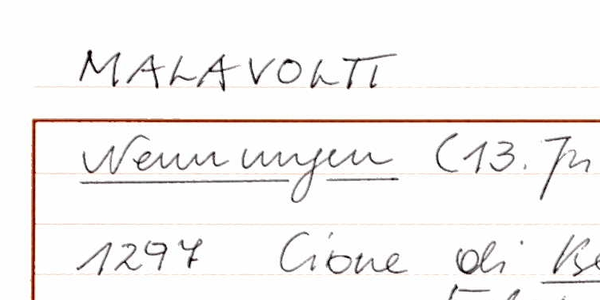 MALAVOLTI
Nennungen (13. Jh
1297 Cione di Be